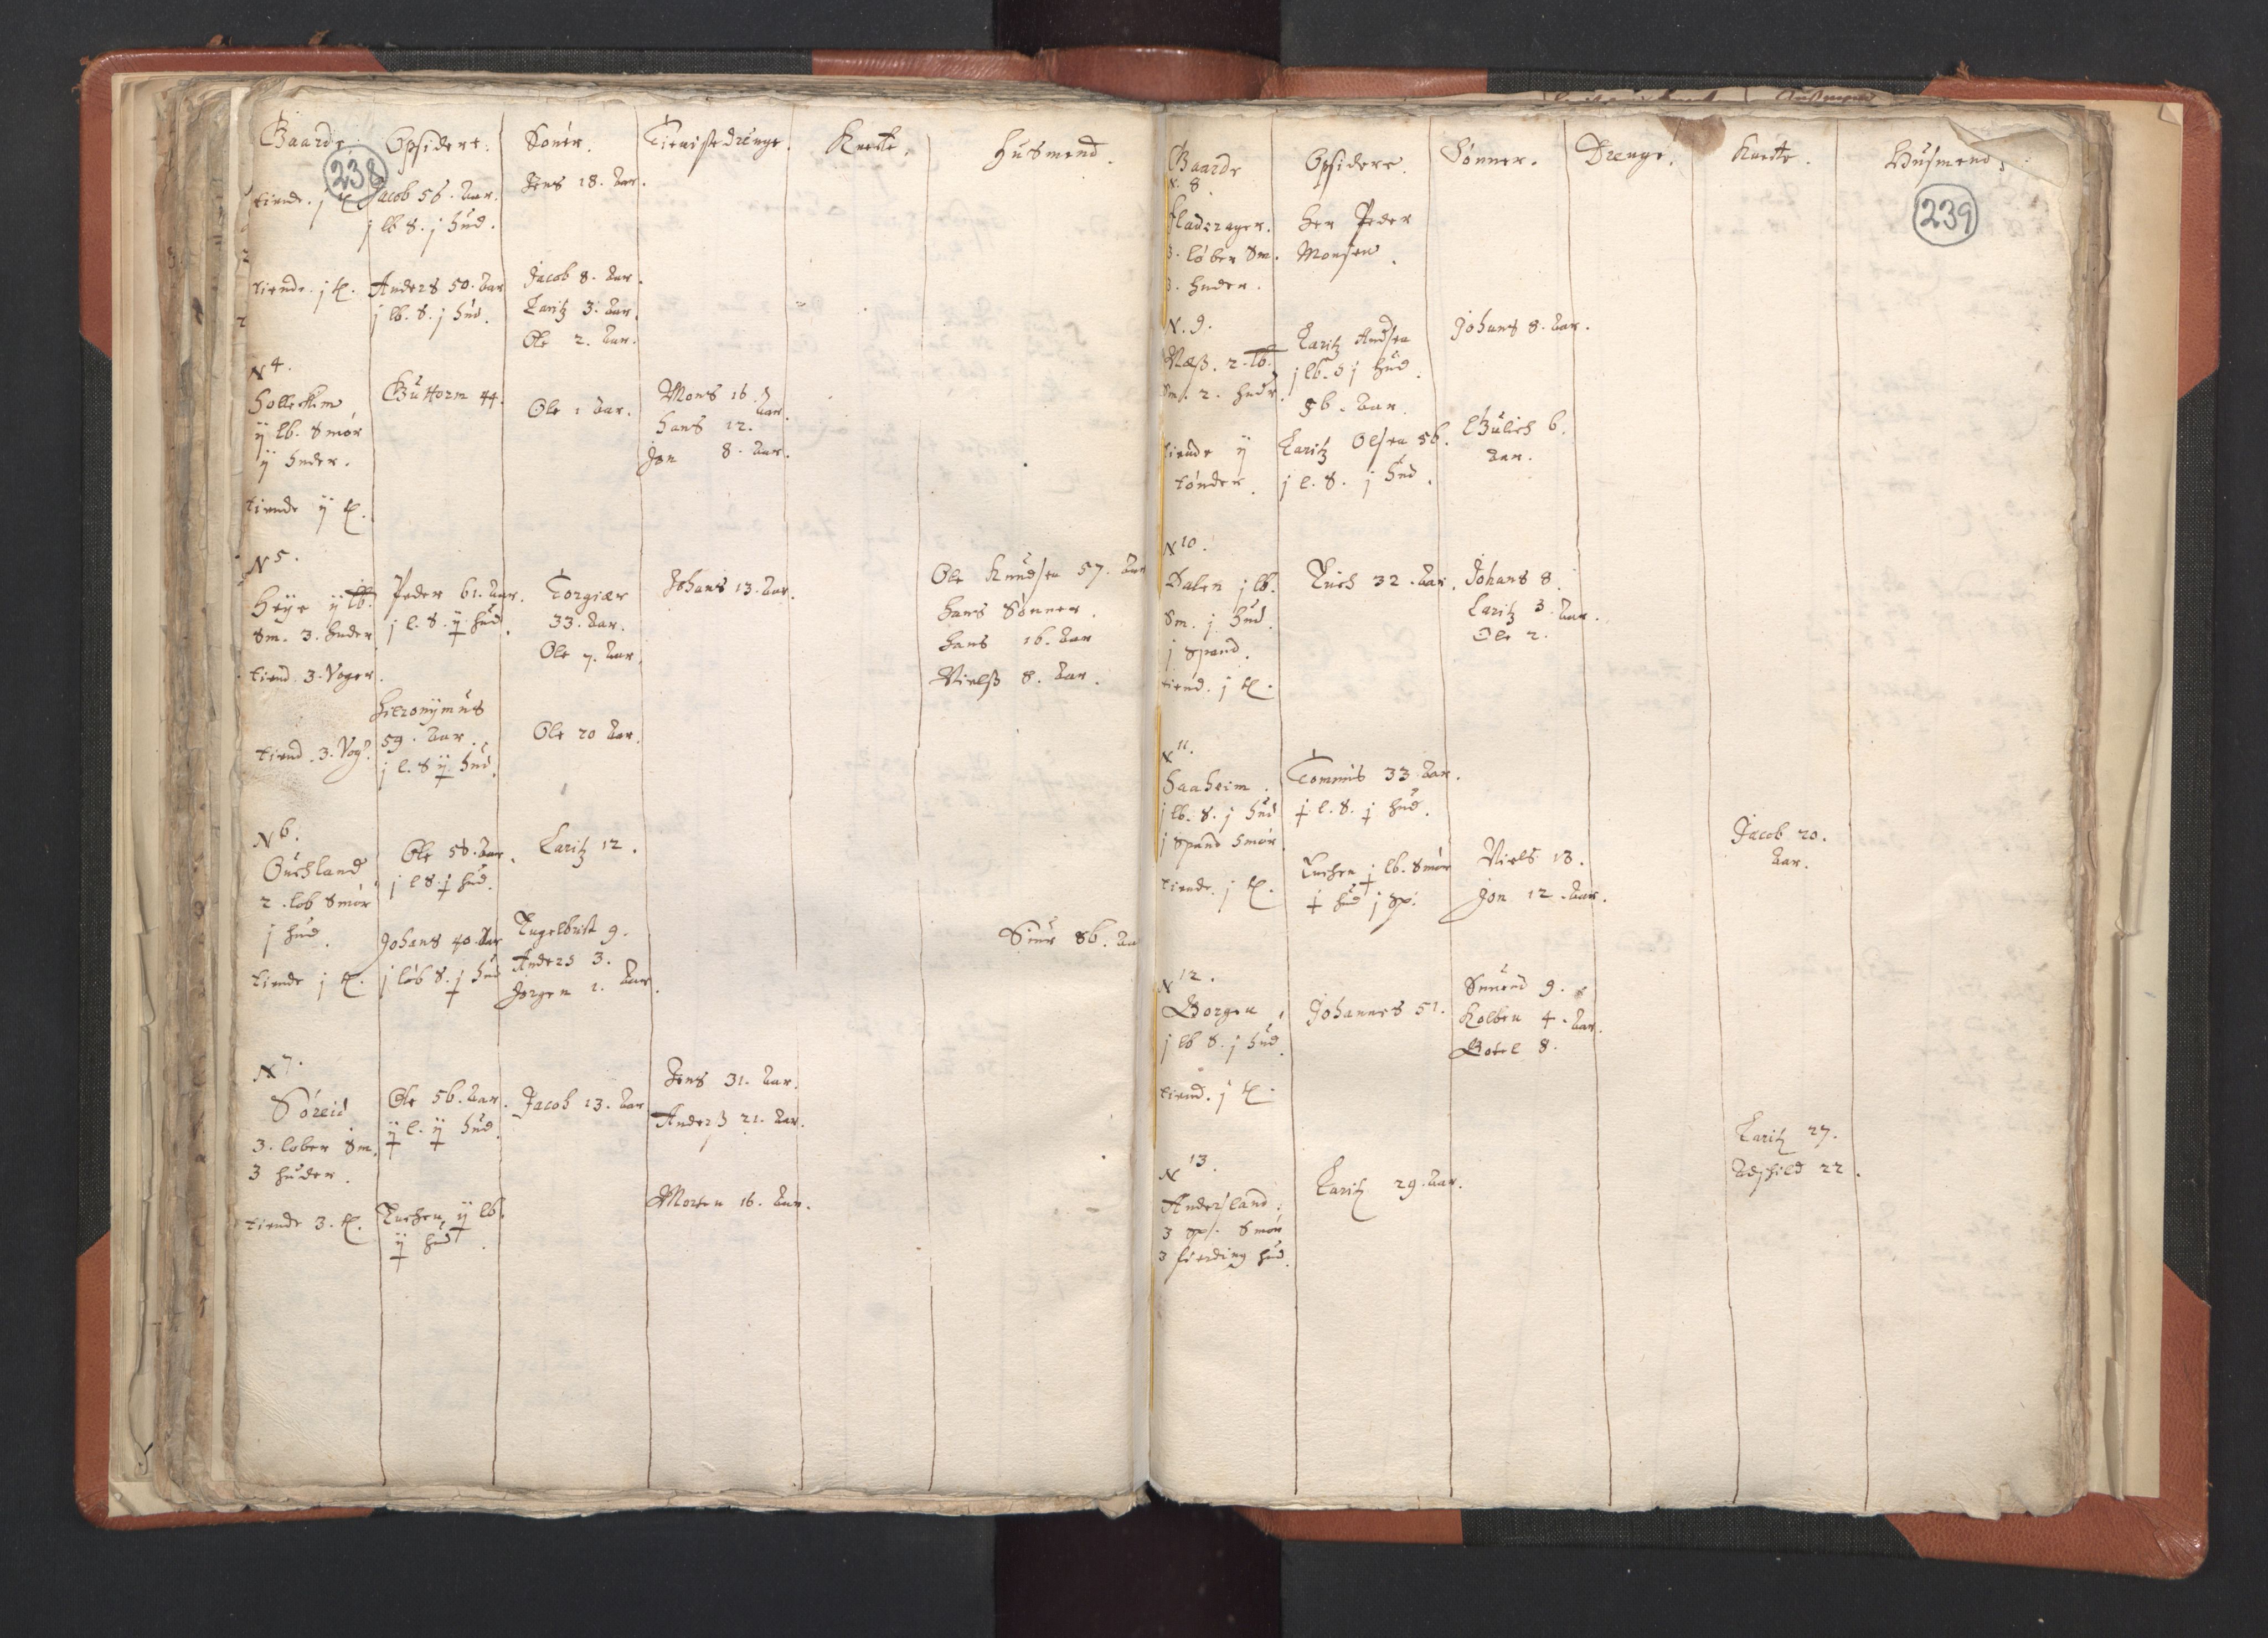 238
Gaarde. Opsidere. Sóner. Tienistedrenge. Knecte. Husmend.
tiende. j Jacob 56. Aar. Jens 18. Aar.
j lb S. j hud.
tiende. j Anders 50. Aar Jacob 8. Aar.
j lb. S. j hud. Laritz 3. Aar.
Ole 2. Aar.
N 4.
Guttorm 44. Ole 1 Aar. Mons 16.
ij lb. Smór Hans 12. Aar.
ij huder. Jon 8. Aar.
tiende ij
N 5.
Høye ij lb. Peder 61. Aar. Torgier Johans 13. Aar. Ole Knudsen 57. Aar
Sm. 3. huder j l. S. ij hud. 33. Aar. hans Sónner.
tiend. 3. Voger. Ole 7. Aar. Hans 16. Aar
Nielß 8. Aar.
Hieronymus
59. Aar. Ole 20 Aar.
tiend. 3. Vog j l. S ij hud.
N 6.
Ouchland Ole 58. Aar. Laritz 12.
2. lob Smór j l S. j hud.
j hud. Johans 40. Aar Engelbrit 9. 86. Aar
tiende j j lób S. j hud Anders 3.
Jórgen 1. Aar.
N 7.
Sóreid Ole 56. Aar. Jacob 13. Aar Jens 31. Aar.
3. lober Sm. ij l. ij hud. Anderß 21. Aar.
3 huder.
tiende 3. Enchen ij lb. Morten 16. Aar.
ij hud.
239
Gaarde Opsidere. Sónner. Drenge. Knecte. Husmend.
N. 8.
Fladerager. Her Peder
3. lóber Sm. Monsen.
3. huder.
N. 9. Laritz Andsen Johans 8. Aar.
Næß. 2. lb. j lb. S j hud.
Sm. 2. hudr. 56. Aar.
tiende ij Laritz Olsen 56. 6.
tónder. j l. S. j hud. Aar.
N 10.
Dalen j lb. Erich 32. Aar. Johans 8.
Sm. j hud. Laritz 3. Aar.
j Spand. Ole 2.
tiend. j
N 11.
Haaheim. Tommis 33 Aar.
j lb. S. j hud j l. S. j hud.
j Spand Smór. Jacob 20.
tiende. j Enchen j lb. Smór Niels 13. Aar.
j hud j Sp. Jon 12. Aar.
N 12.
Borgen. Johannes 51. 9.
j lb S. j hud. Kolben 4. Aar.
Botel 8.
tiend. j
N 13.
Andersland. Laritz 29. Aar. Laritz 27.
3 Sp. Smór 22.
3 fierding hud.